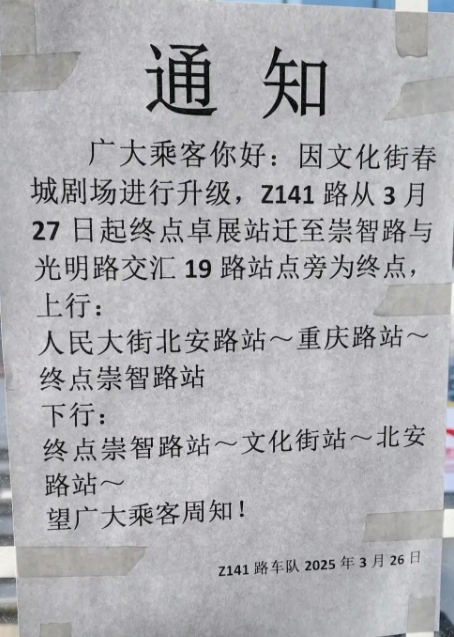 通知
广大乘客你好：因文化街春
城剧场进行升级，Z141 路从 3 月
27 日起终点卓展站迁至崇智路与
光明路交汇 19 路站点旁为终点，
上行：
人民大街北安路站～重庆路站～
终点崇智路站
下行：
终点崇智路站～文化街站～北安
路站～
望广大乘客周知！
Z141 路车队 2025 年 3 月 26 日